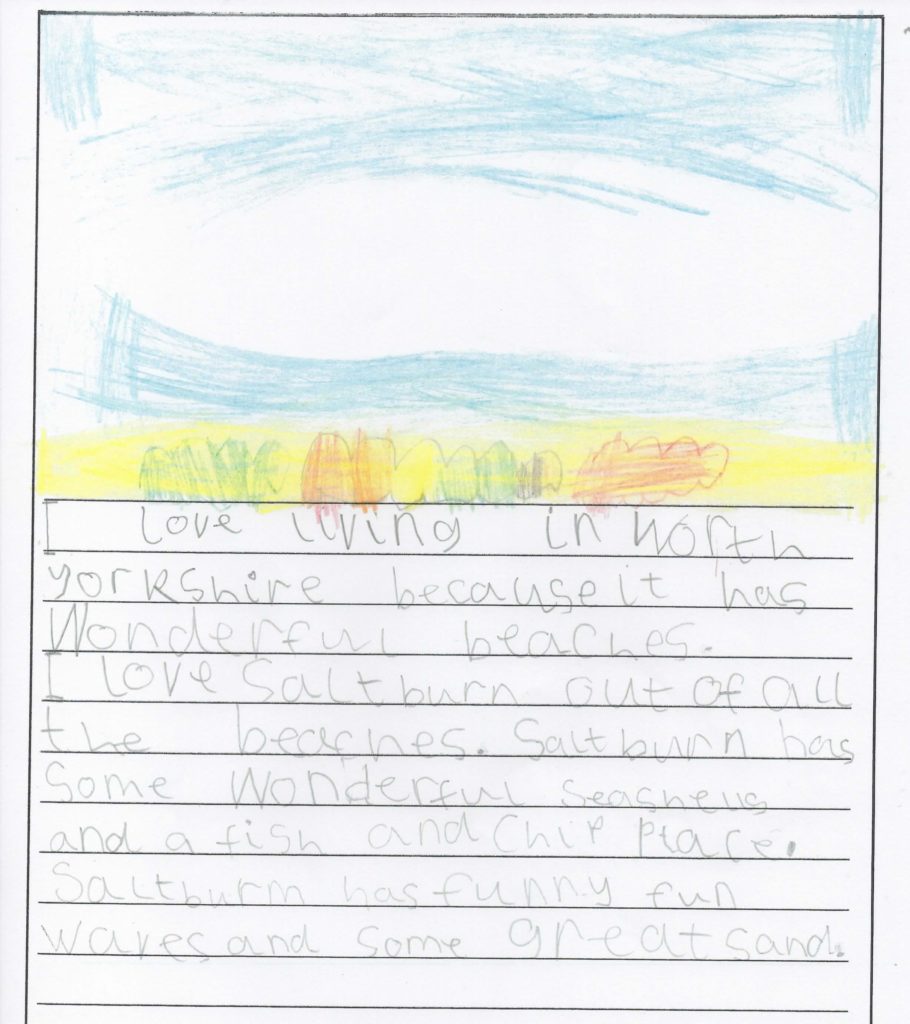 I love living in North
yorkshire because it has
Wonderful beaches.
I love Saltburn out of all
the beaches. Saltburn has
Some Wonderful seashells
and a fish and Chip Place.
Saltburn has funny fun
waves and some great sand.